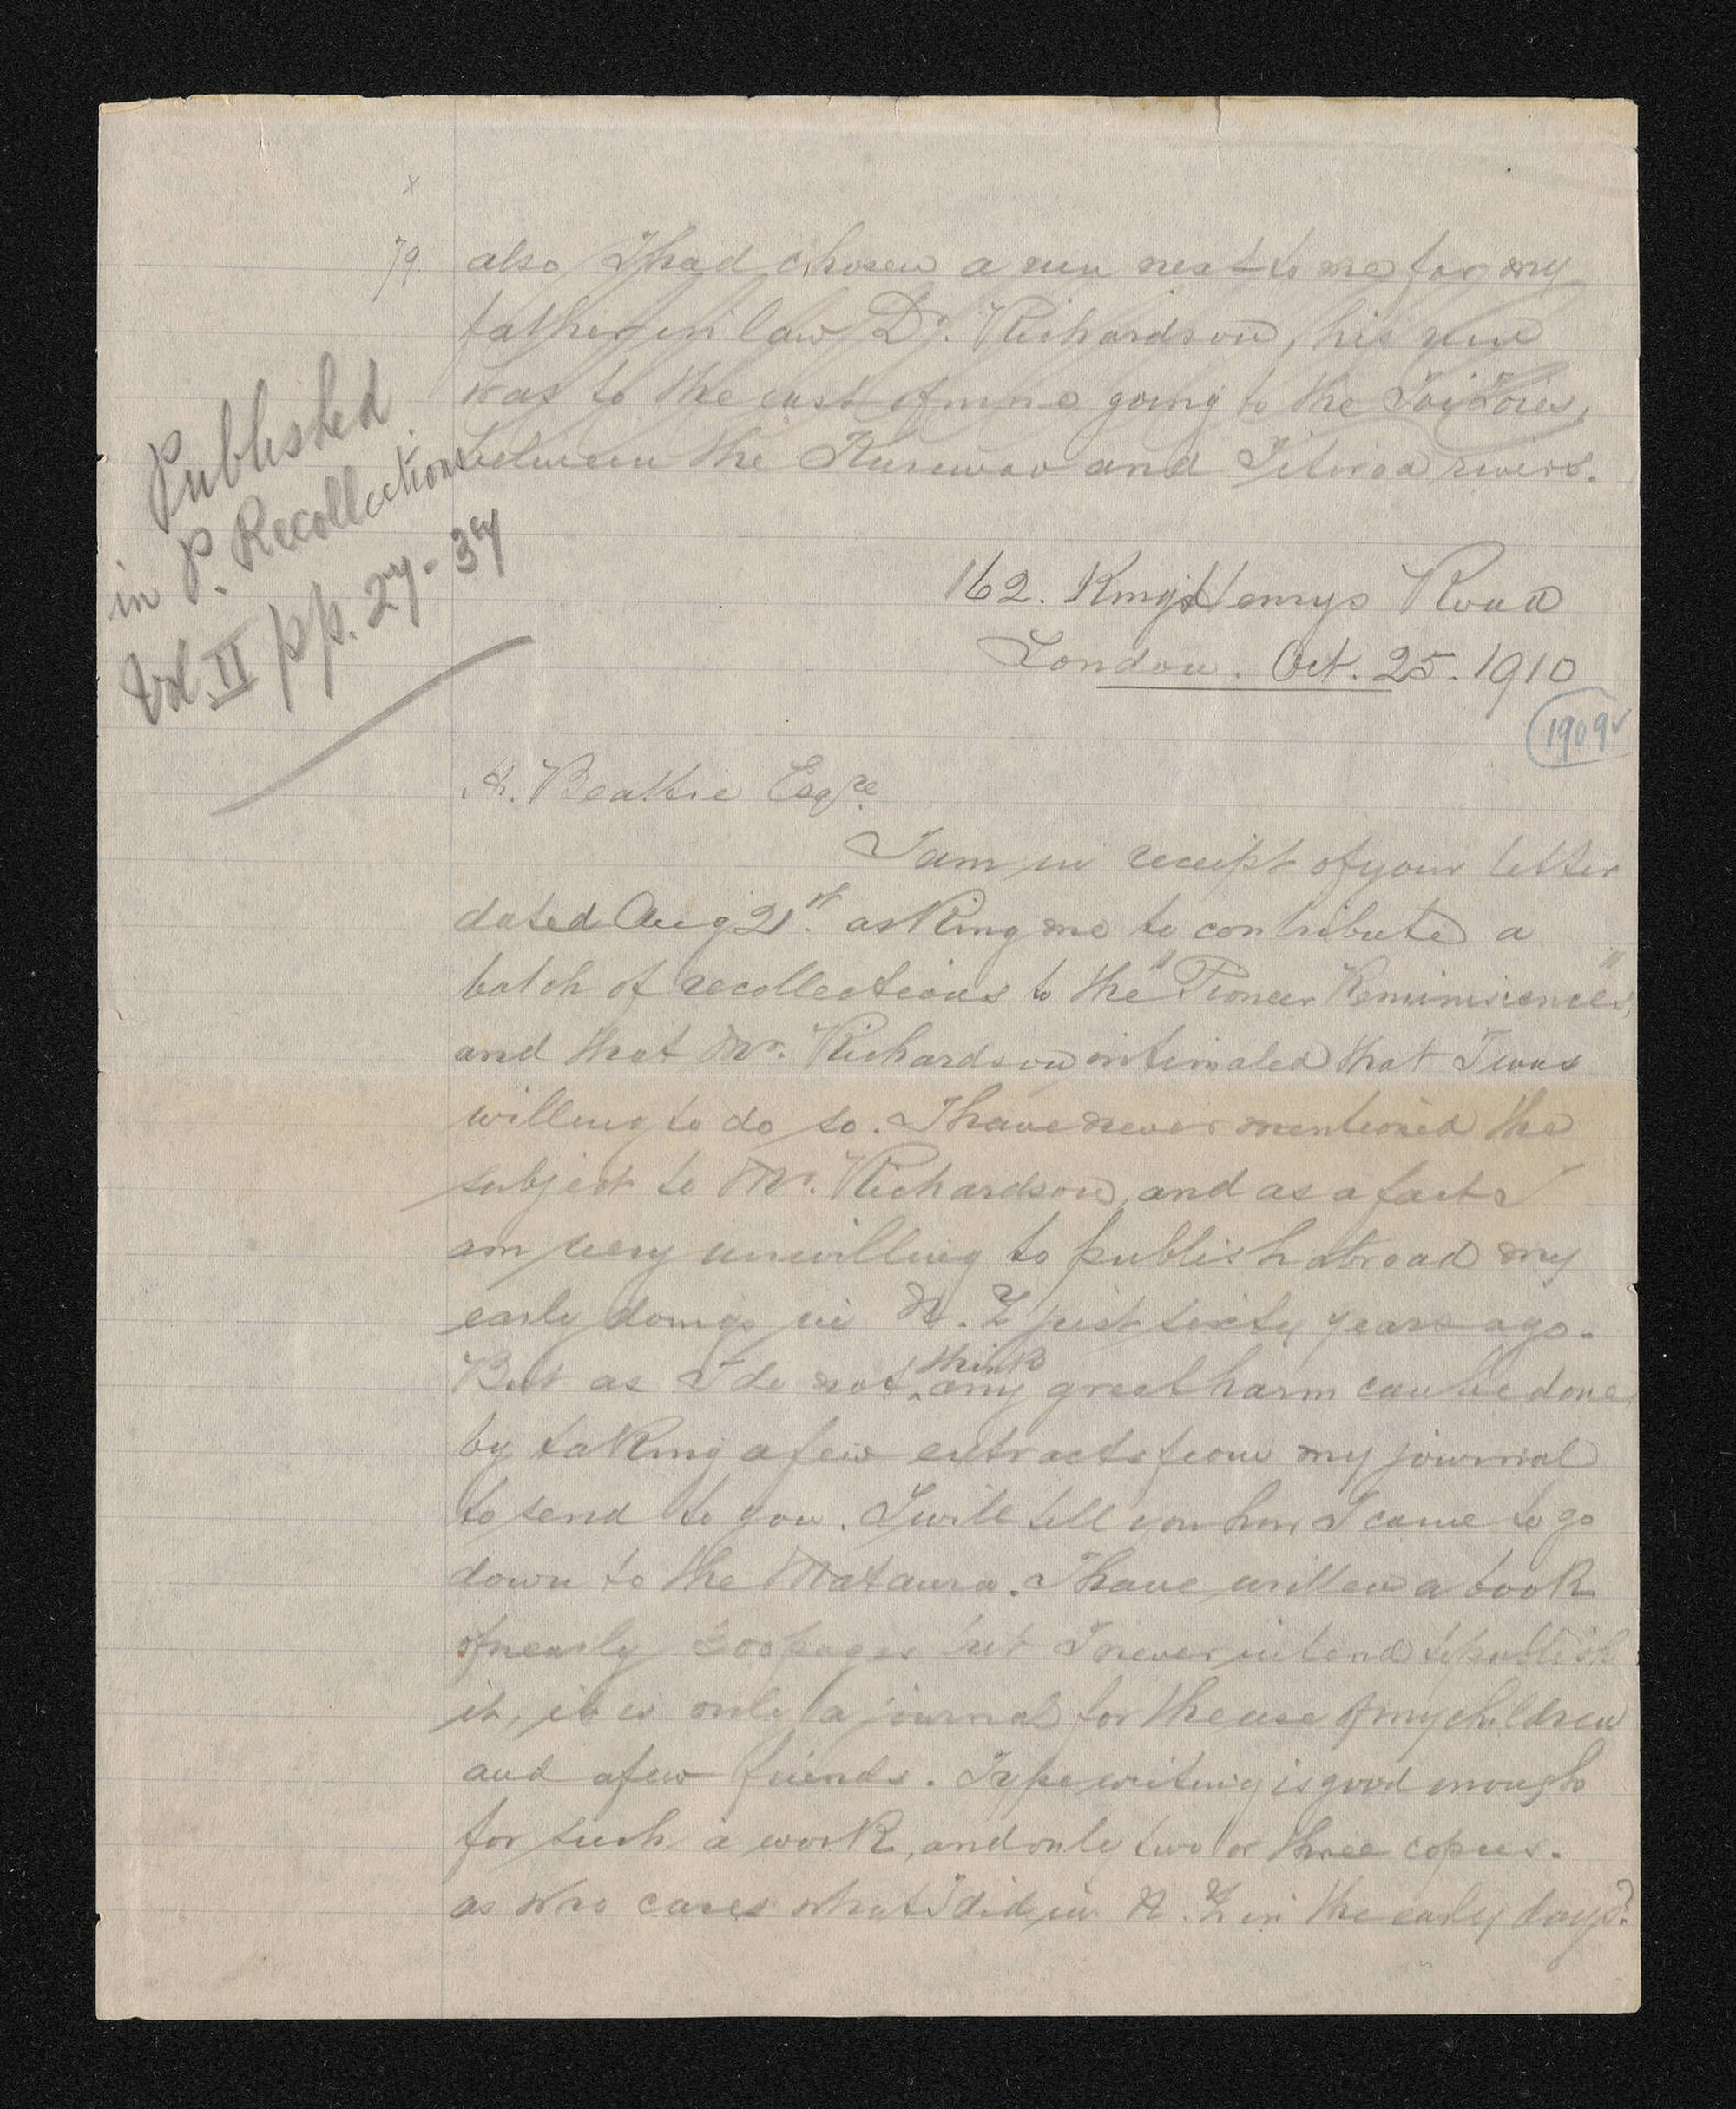 x
79. also I had chosen a run next to me for my
father in law Dr. Richardson, his run
was to the east of mine going to the Toi Tois,
between the and Titiroa rivers.
Published
in P. Recollections
Vol II pp. 27-37
162. King Henrys Road
London. Oct. 25. 1910
1909
H. Beattie Esqre.
I am in receipt of your letter
dated Aug 21st. asking me to contribute a
batch of recollections to the "Pioneer Reminiscences",
and that Mr. Richardson intimated that I was
willing to do so. I have never mentioned the
subject to Mr. Richardson, and as a fact I
am very unwilling to publish abroad my
early doings in N. Z just sixty years ago.
But as I do not think any great harm can be done
by taking a few extracts from my journal
to send to you. I will tell you how I came to go
down to the Mataura. I have written a book
of nearly 300 pages but I never intend to publish
it, it is only a journal for the use of my children
and a few friends. Type writing is good enough
for such a work, and only two or three copies.
as who cares what I did in N. Z in the early days?